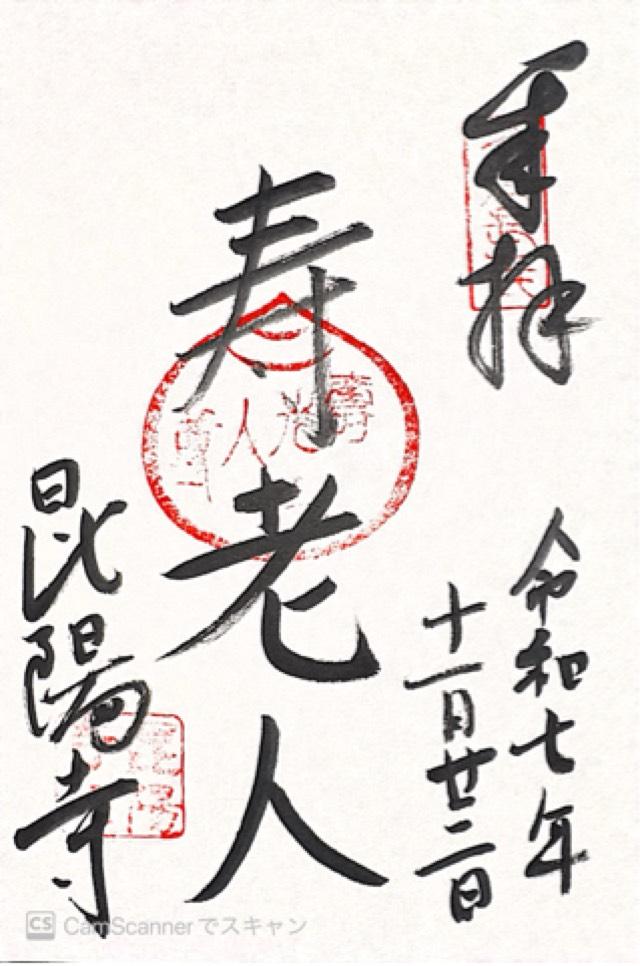 奉拝
令和七年
十一月廿二日
寿老人
壽老人
昆陽寺
CS CamScannerでスキャン